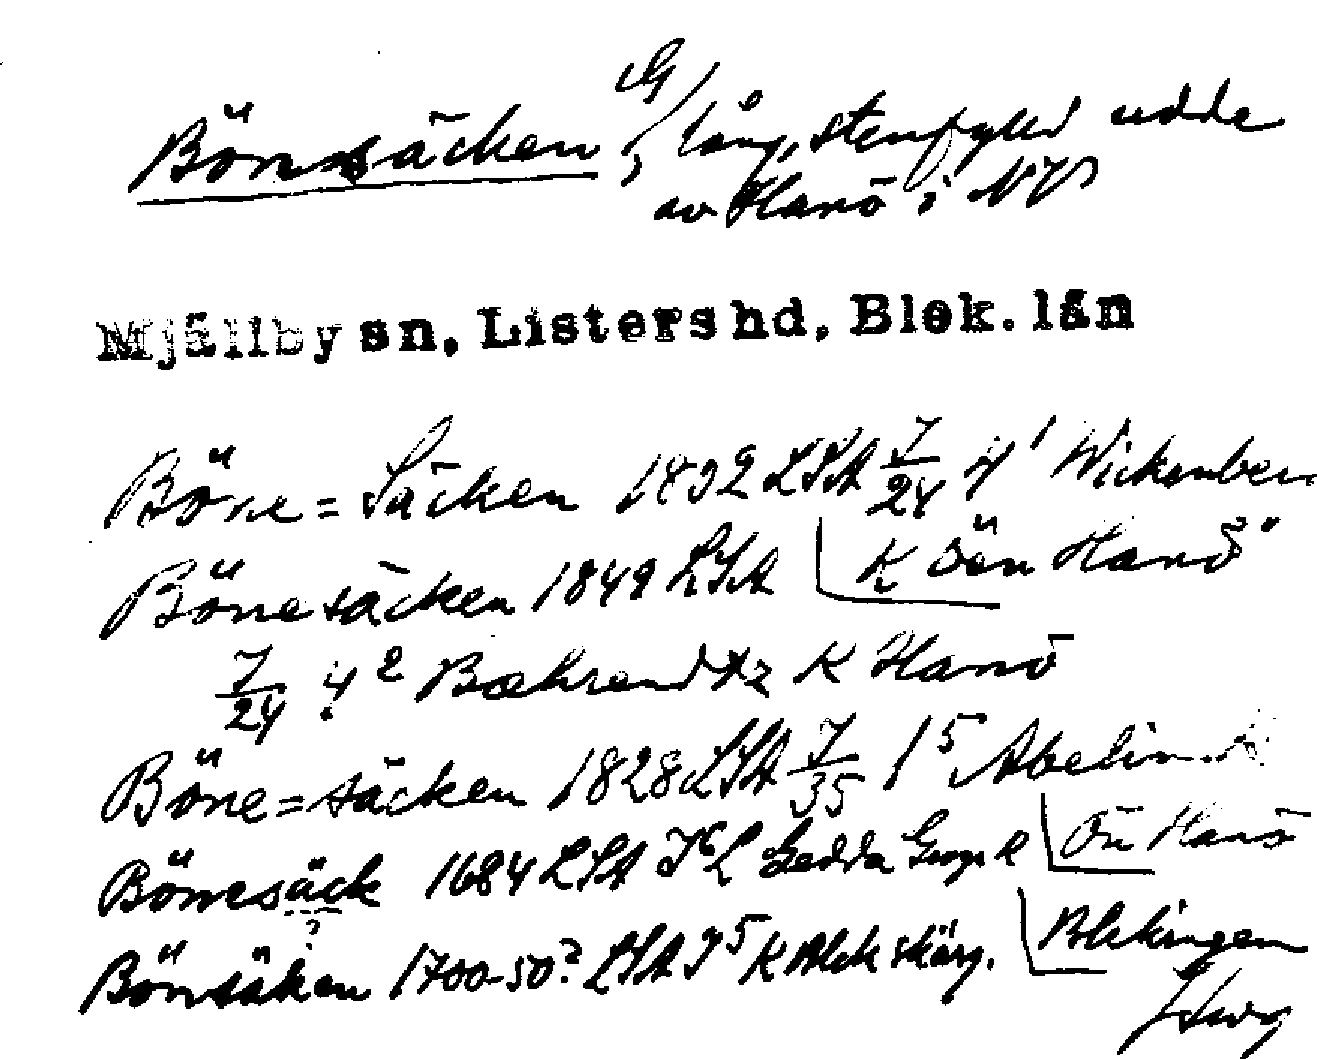 Bönsäcken, lång, stenfylld udde
av Hanö i NV
Mjällby sn, Listers hd, Blek. län
Böne=Säcken 1892 LSA 7/24 4¹ Wickenberg
Bönesäcken 1849 LSA K öen Hanö"
7/24 4² Bæhrendtz K Hanö
Böne=säcken 1828 LSA 7/35 1⁵ Abelin
Bönesäck 1684 LSA Gedda Ön Hanö
?
Bönsäken 1700-50? LSA K Blek skärg. Blekingen